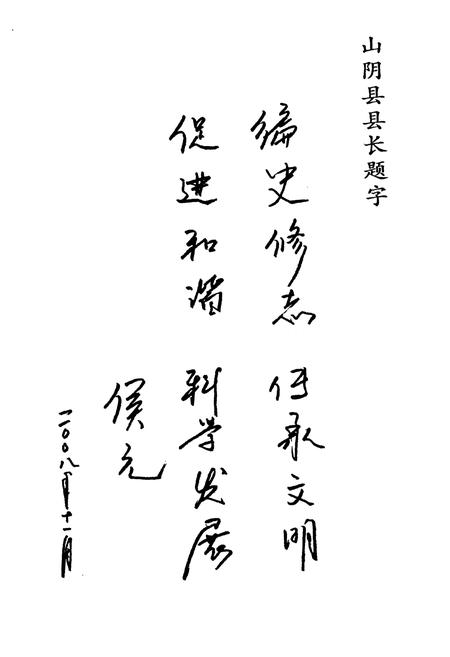 山阴县县长题字
编史修志 传承文明
促进和谐 科学发展
侯元
二〇〇八年十一月